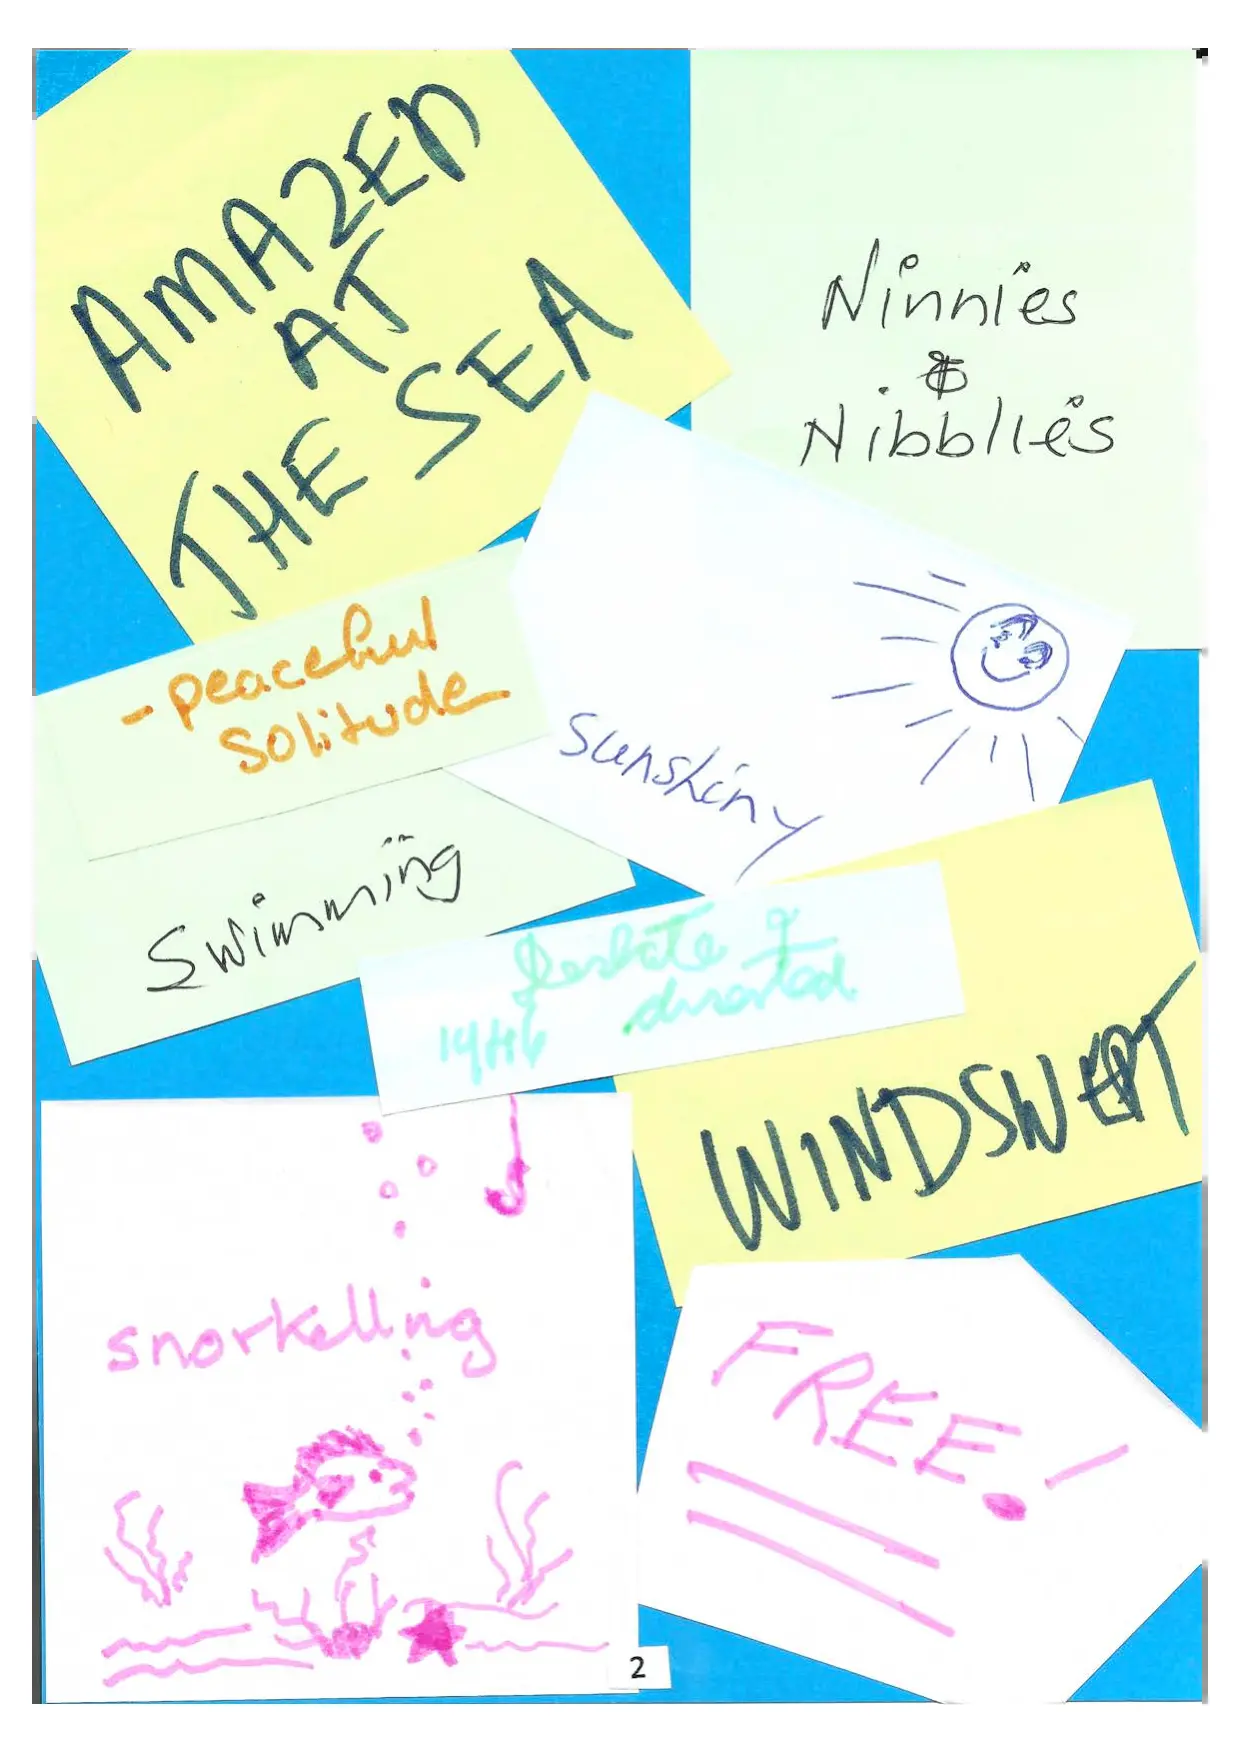 AMAZED
AT
THE SEA
Ninnies
&
Nibblies
- peaceful
solitude
sunshiny
Swimming
deserted
WINDSWEPT
snorkelling
FREE!
2